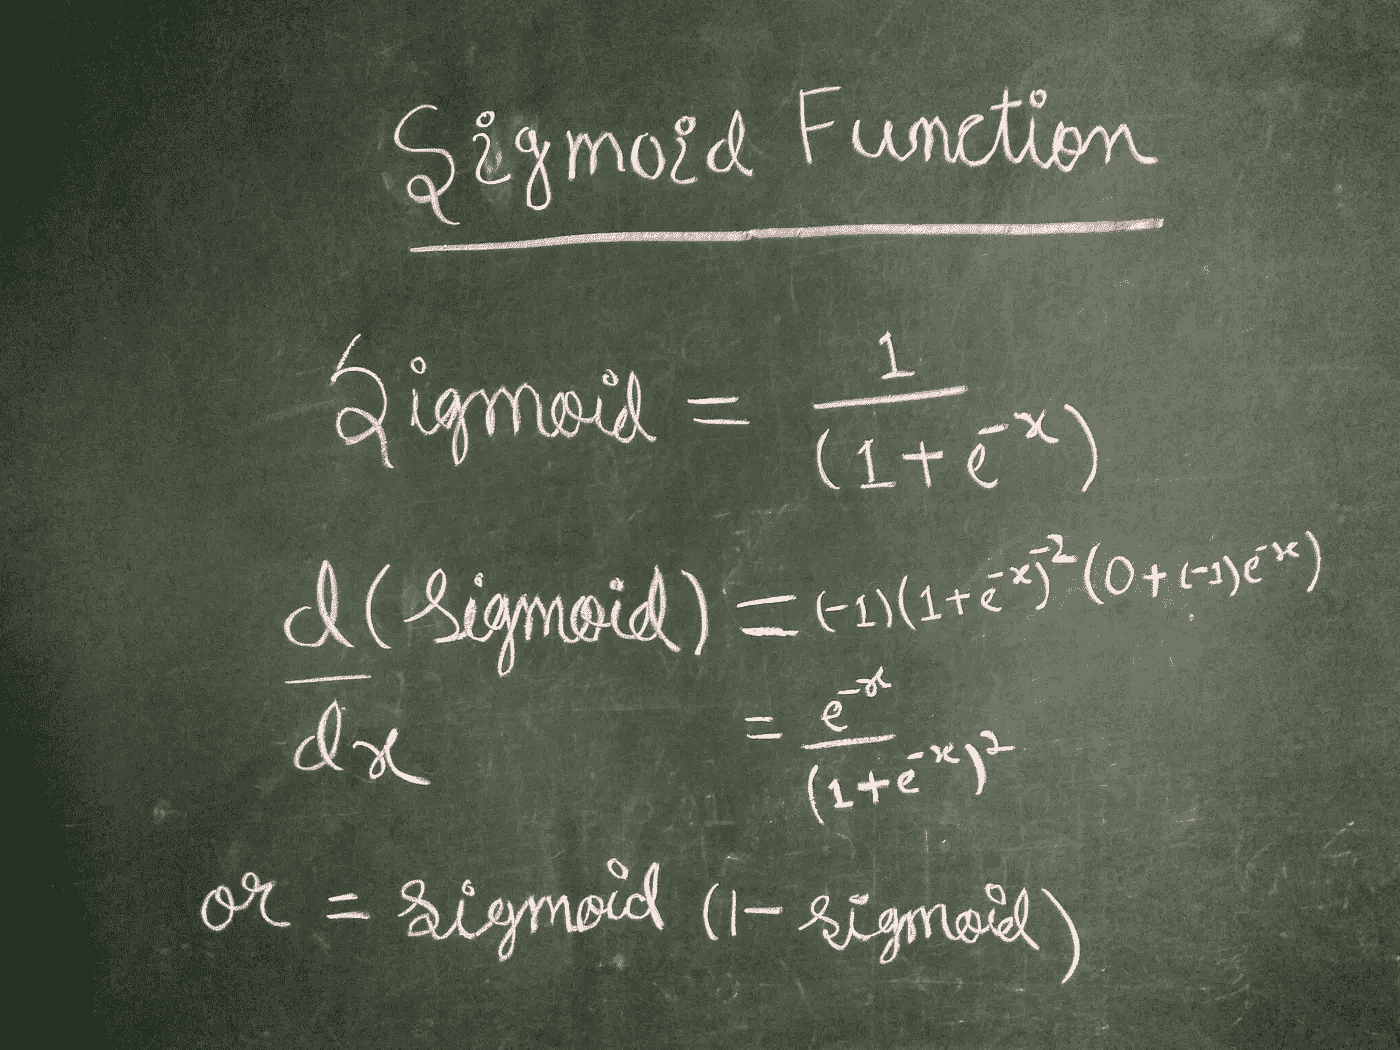 Sigmoid Function
Sigmoid = 1 / (1 + e^-x)
d(sigmoid) / dx = (-1)(1+e^-x)^-2 (0+(-1)e^-x)
= e^-x / (1+e^-x)^2
or = sigmoid (1 - sigmoid)